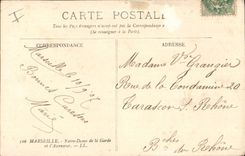 CARTE POSTALE
Tous les Pays étrangers n'acceptent pas la Correspondance
(Se renseigner à la Poste)
CORRESPONDANCE
ADRESSE
Marseille
Bonnes
Marie
Madame Vve Grangier
Place de la Condamine 20
Tarascon St Rhône
Bches du Rhône
MARSEILLE. - Notre-Dame de la Garde
et l'Ascenseur. - LL.